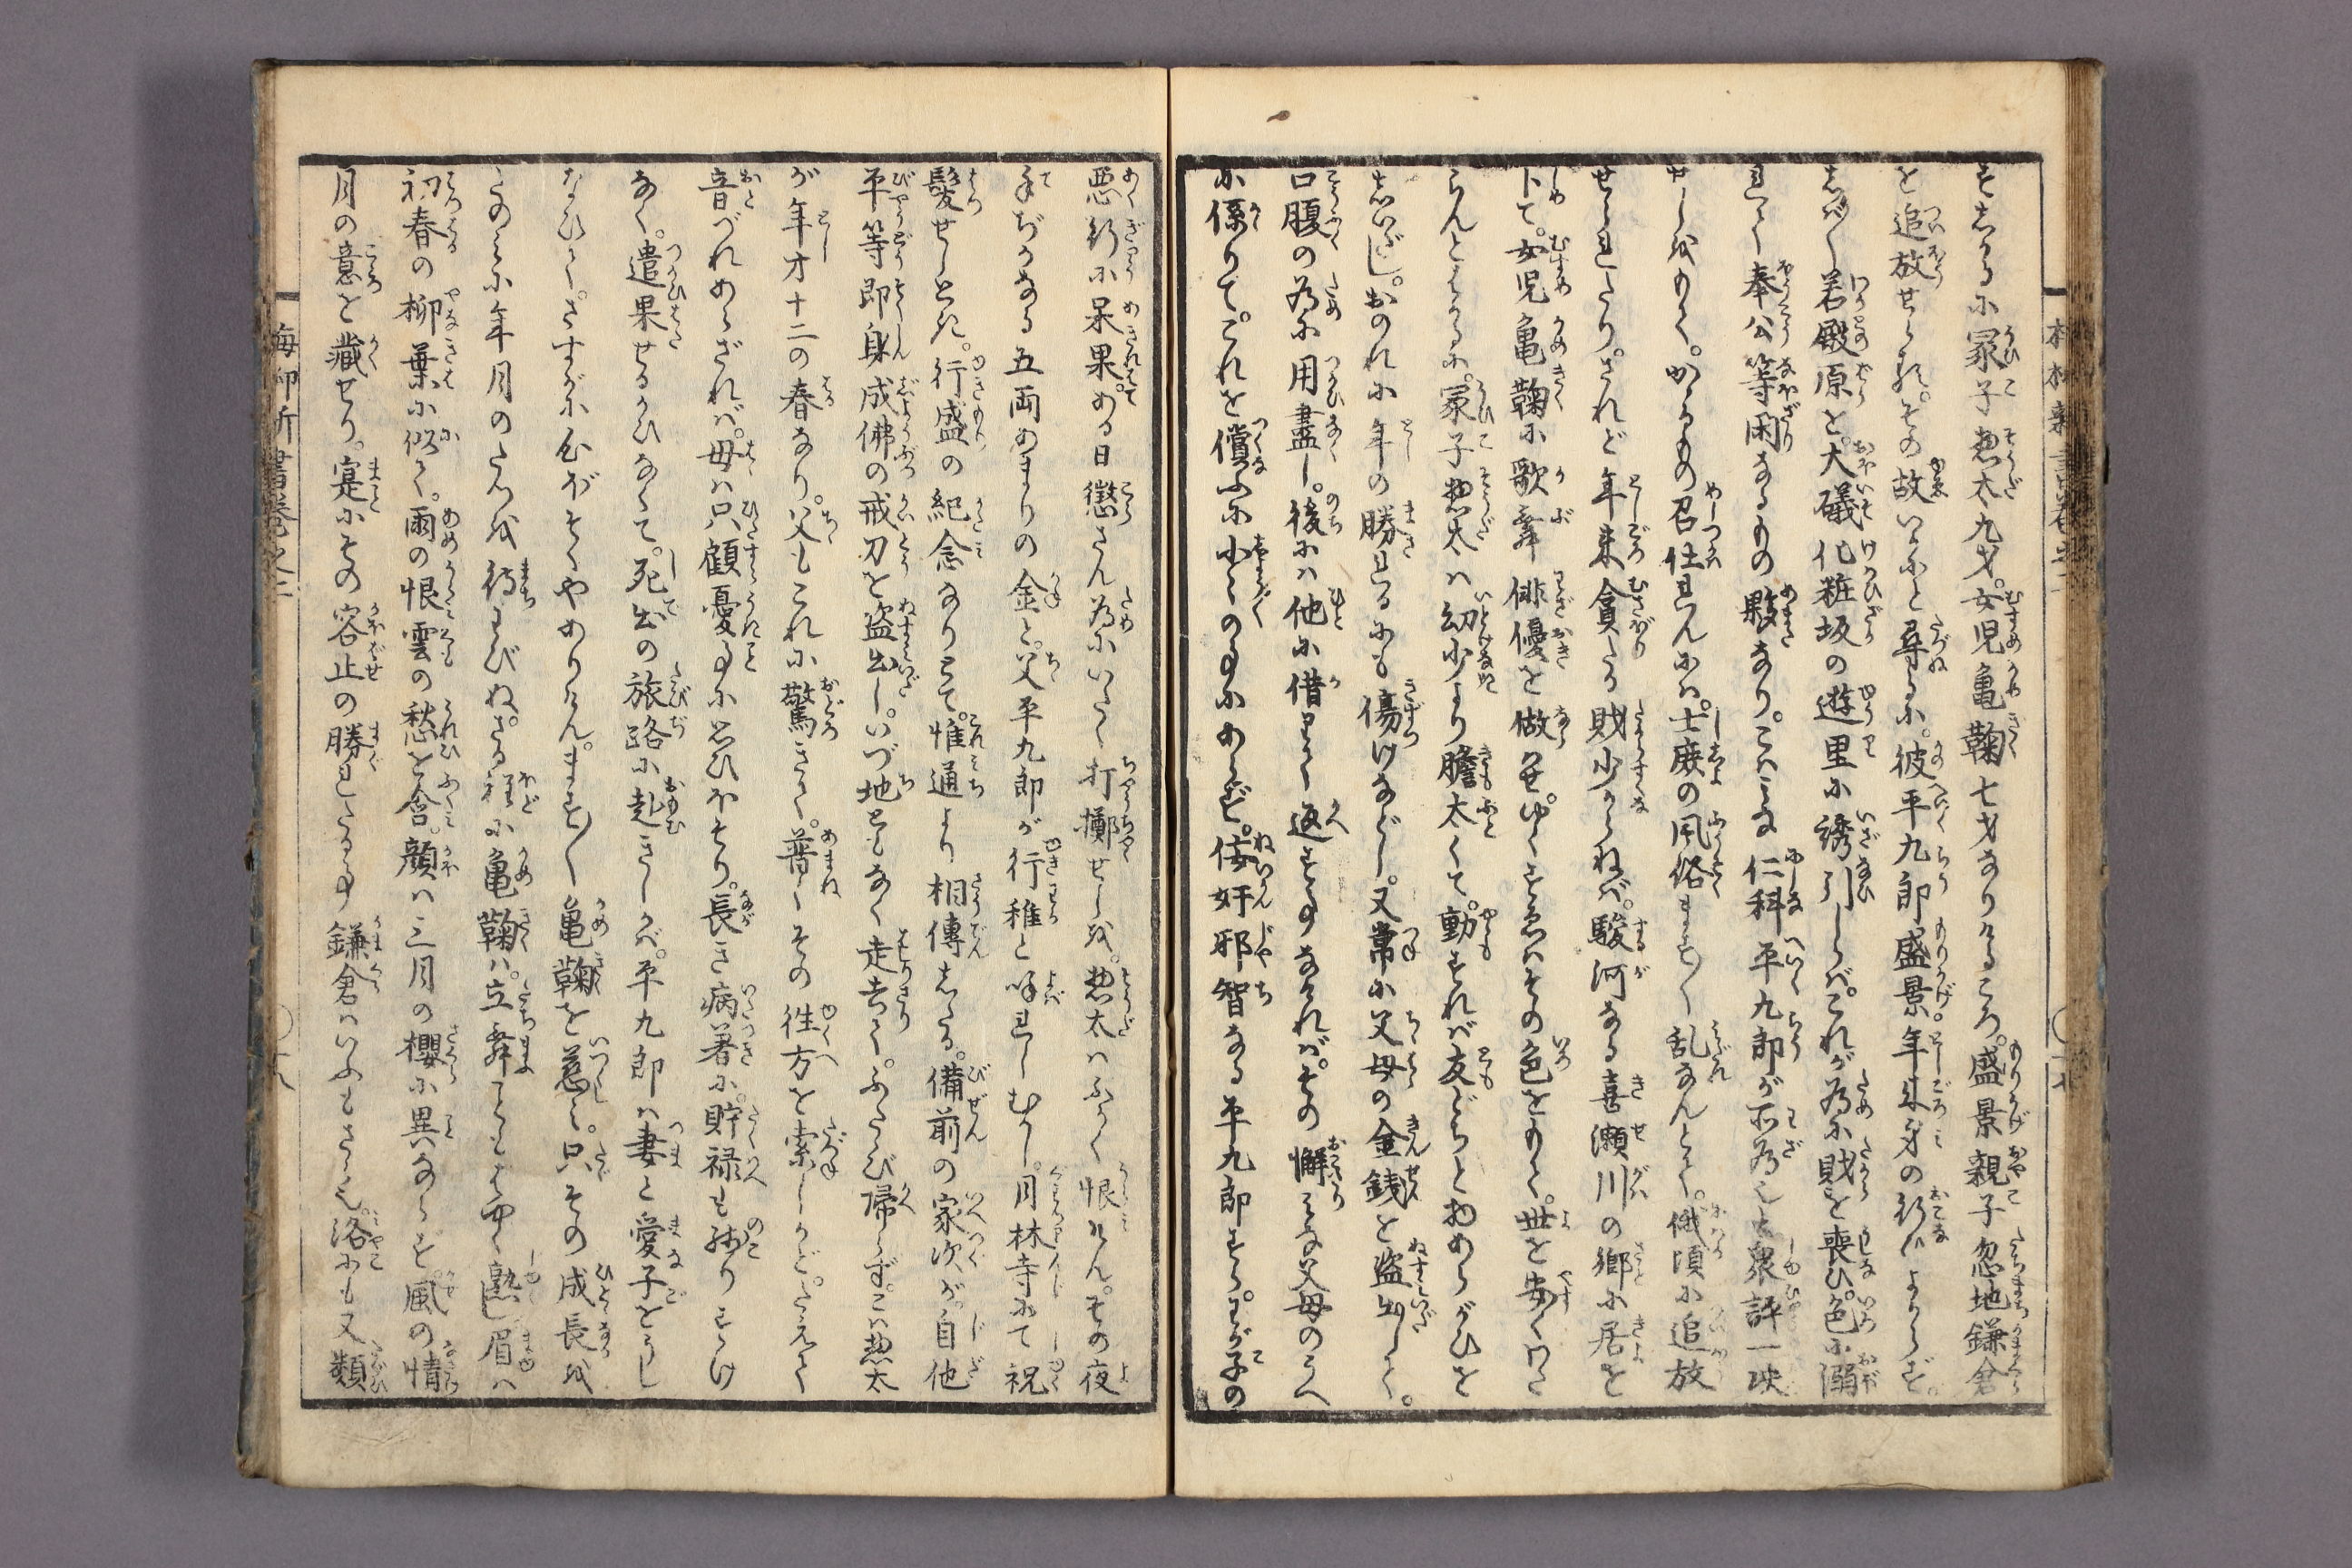 をしるに冢子惣太九才。女児亀鞠七才なりけるころ。盛景親子忽地鎌倉
を追放せらる。その故いかにと尋るに。彼平九郎盛景。年来身の行ひよからず。
しば〳〵若殿原を。大礒化粧坂の遊里に誘引しかば。これが為に財を喪ひ。色に溺
れて奉公等閑なるもの夥あり。こはみな仁科平九郎が所為也と衆評一决
せしかりて。かゝるもの召仕れんには。士庶の風俗ます〳〵乱なんとて。俄頃に追放
せられたり。されど年来貪たる財少からねば。駿河なる喜瀬川の郷に居を
卜て。女児亀鞠に歌舞俳優を做せ。ゆく すゑはその色をもて。世を安くわた
らんとはかるに。冢子惣太は幼少より膽太くて。動すれば友どちと物あらがひを
しいだし。おのれに年の勝れるにも傷けなどし。又常に父母の金銭を盗出して。
口腹の為に用盡し。後には他に借りて返すことなければ。その懈みな父母のうへ
に係りて。これを償ふに小〻のことにあらず。佞奸邪智なる平九郎すら。わが子の
悪行に呆果。ある日懲さん為にいたく打擲せしを。惣太はふかく恨けん。その夜
手ぢかなる五両あまりの金と。父平九郎が行稚と呼れしむかし。月林寺にて祝
髪せしとき。行盛の紀念なりとて。惟通より相傳したる。備前の家次が。自他
平等即身成佛の戒刀を盗出し。いづ地ともなく走去て。ふたゝび帰らず。こは惣太
が年才十二の春なり。父もこれに驚きて。普くその往方を索しかど。たえて
音づれあらざれば。母は只顧憂ことに思ひほそり。長き病著に。貯禄も残りすく
なく。遣果せるかひなくて。死出の旅路に赴きしかば。平九郎は妻と愛子をうし
なひて。さすがに心ぼそくやありけん。ます〳〵亀鞠を慈み。只その成長を
のみに年月のたつを待わびぬ。さる程に亀鞠は。立舞こともはやく熟し。眉は
初春の柳葉に似て。雨の恨雲の愁を含。顔は三月の櫻に異ならず。風の情
月の意を藏せり。寔にその容止の勝れたること。鎌倉はいふもさら也。洛にも又類
梅柳新書巻之二